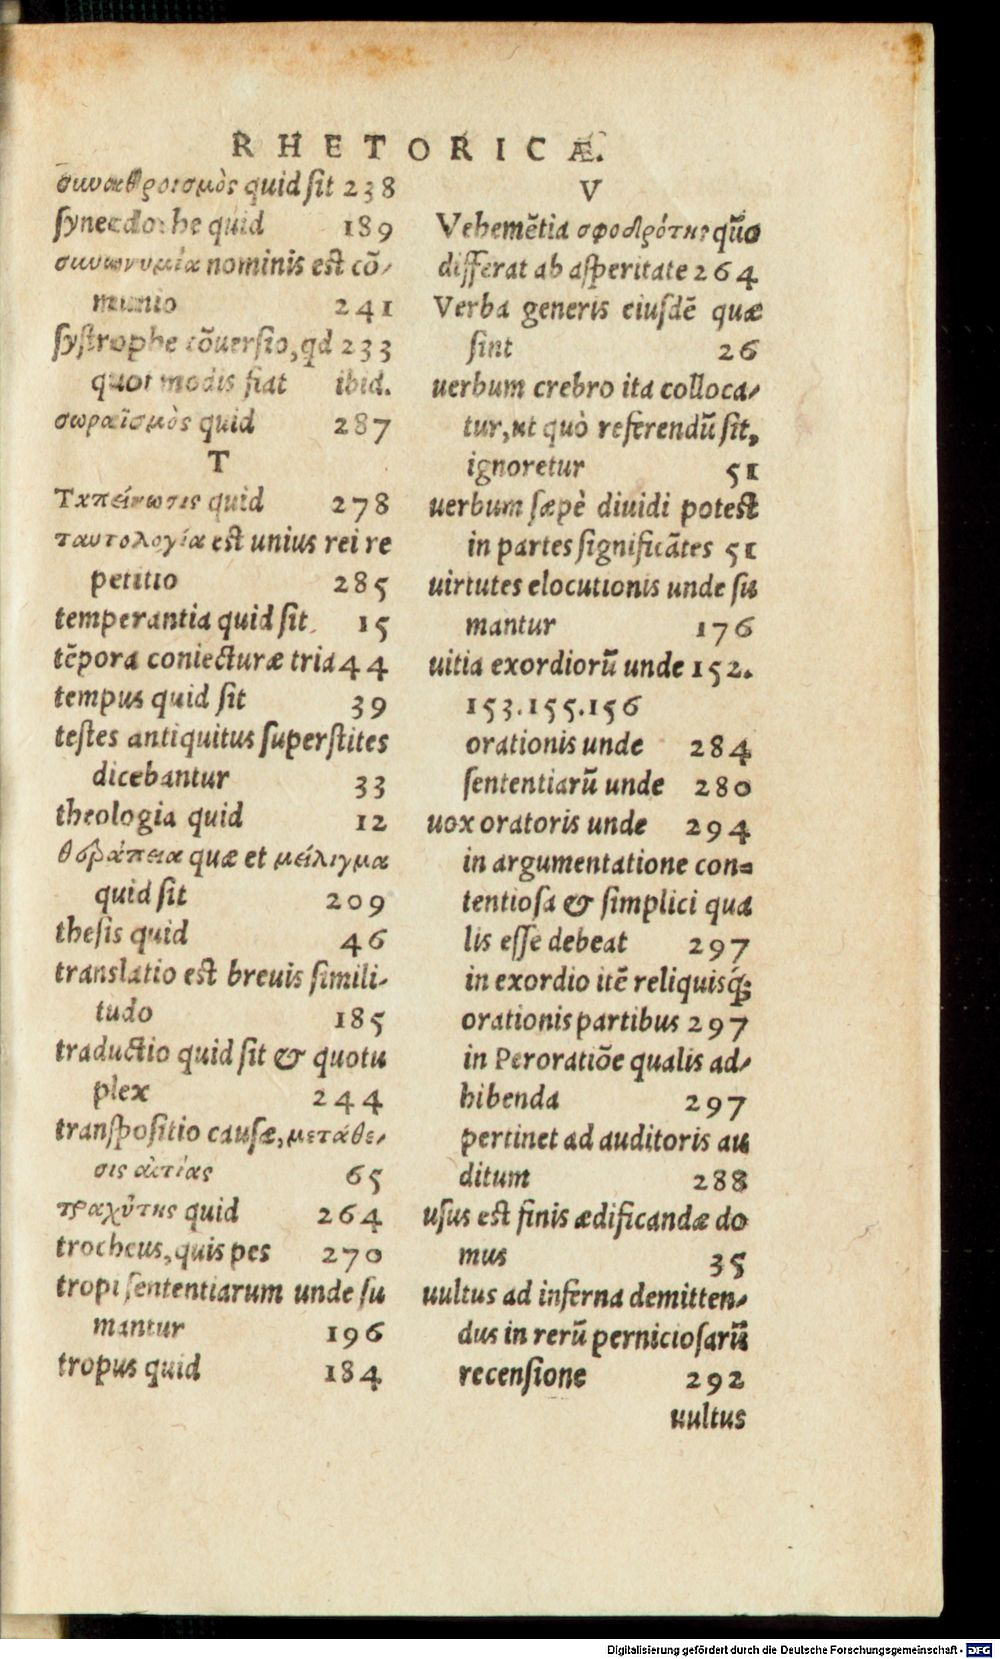 RHETORICÆ.
συναθροισμὸς quid ſit 238
ſynecdoche quid 189
συνωνυμία nominis est cõ-
munio 241
ſyſtrophe cõuerſio, qd 233
quot modis fiat ibid.
σωραϊσμὸς quid 287
T
Ταπείνωσις quid 278
ταυτολογία est unius rei re
petitio 285
temperantia quid ſit 15
tẽpora coniecturæ tria 44
tempus quid ſit 39
teſtes antiquitus ſuperſtites
dicebantur 33
theologia quid 12
θεράπεια quæ et μείλιγμα
quid ſit 209
theſis quid 46
translatio est breuis ſimili-
tudo 185
traductio quid ſit & quotu
plex 244
tranſpoſitio cauſæ, μετάθε-
σις αἰτίας 65
τραχύτης quid 264
trocheus, quis pes 270
tropi ſententiarum unde ſu
mantur 196
tropus quid 184
V
Vehemẽtia σφοδρότης quo
differat ab aſperitate 264
Verba generis eiuſdẽ quæ
ſint 26
uerbum crebro ita colloca-
tur, ut quò referendũ ſit,
ignoretur 51
uerbum ſæpè diuidi potest
in partes ſignificãtes 51
uirtutes elocutionis unde ſu
mantur 176
uitia exordiorũ unde 152.
153.155.156
orationis unde 284
ſententiarũ unde 280
uox oratoris unde 294
in argumentatione con-
tentioſa & ſimplici qua
lis eſſe debeat 297
in exordio itẽ reliquisq́;
orationis partibus 297
in Peroratiõe qualis ad-
hibenda 297
pertinet ad auditoris au
ditum 288
uſus est finis ædificandæ do
mus 35
uultus ad inferna demitten-
dus in rerũ pernicioſarũ
recenſione 292
uultus
Digitalisierung gefördert durch die Deutsche Forschungsgemeinschaft - DFG